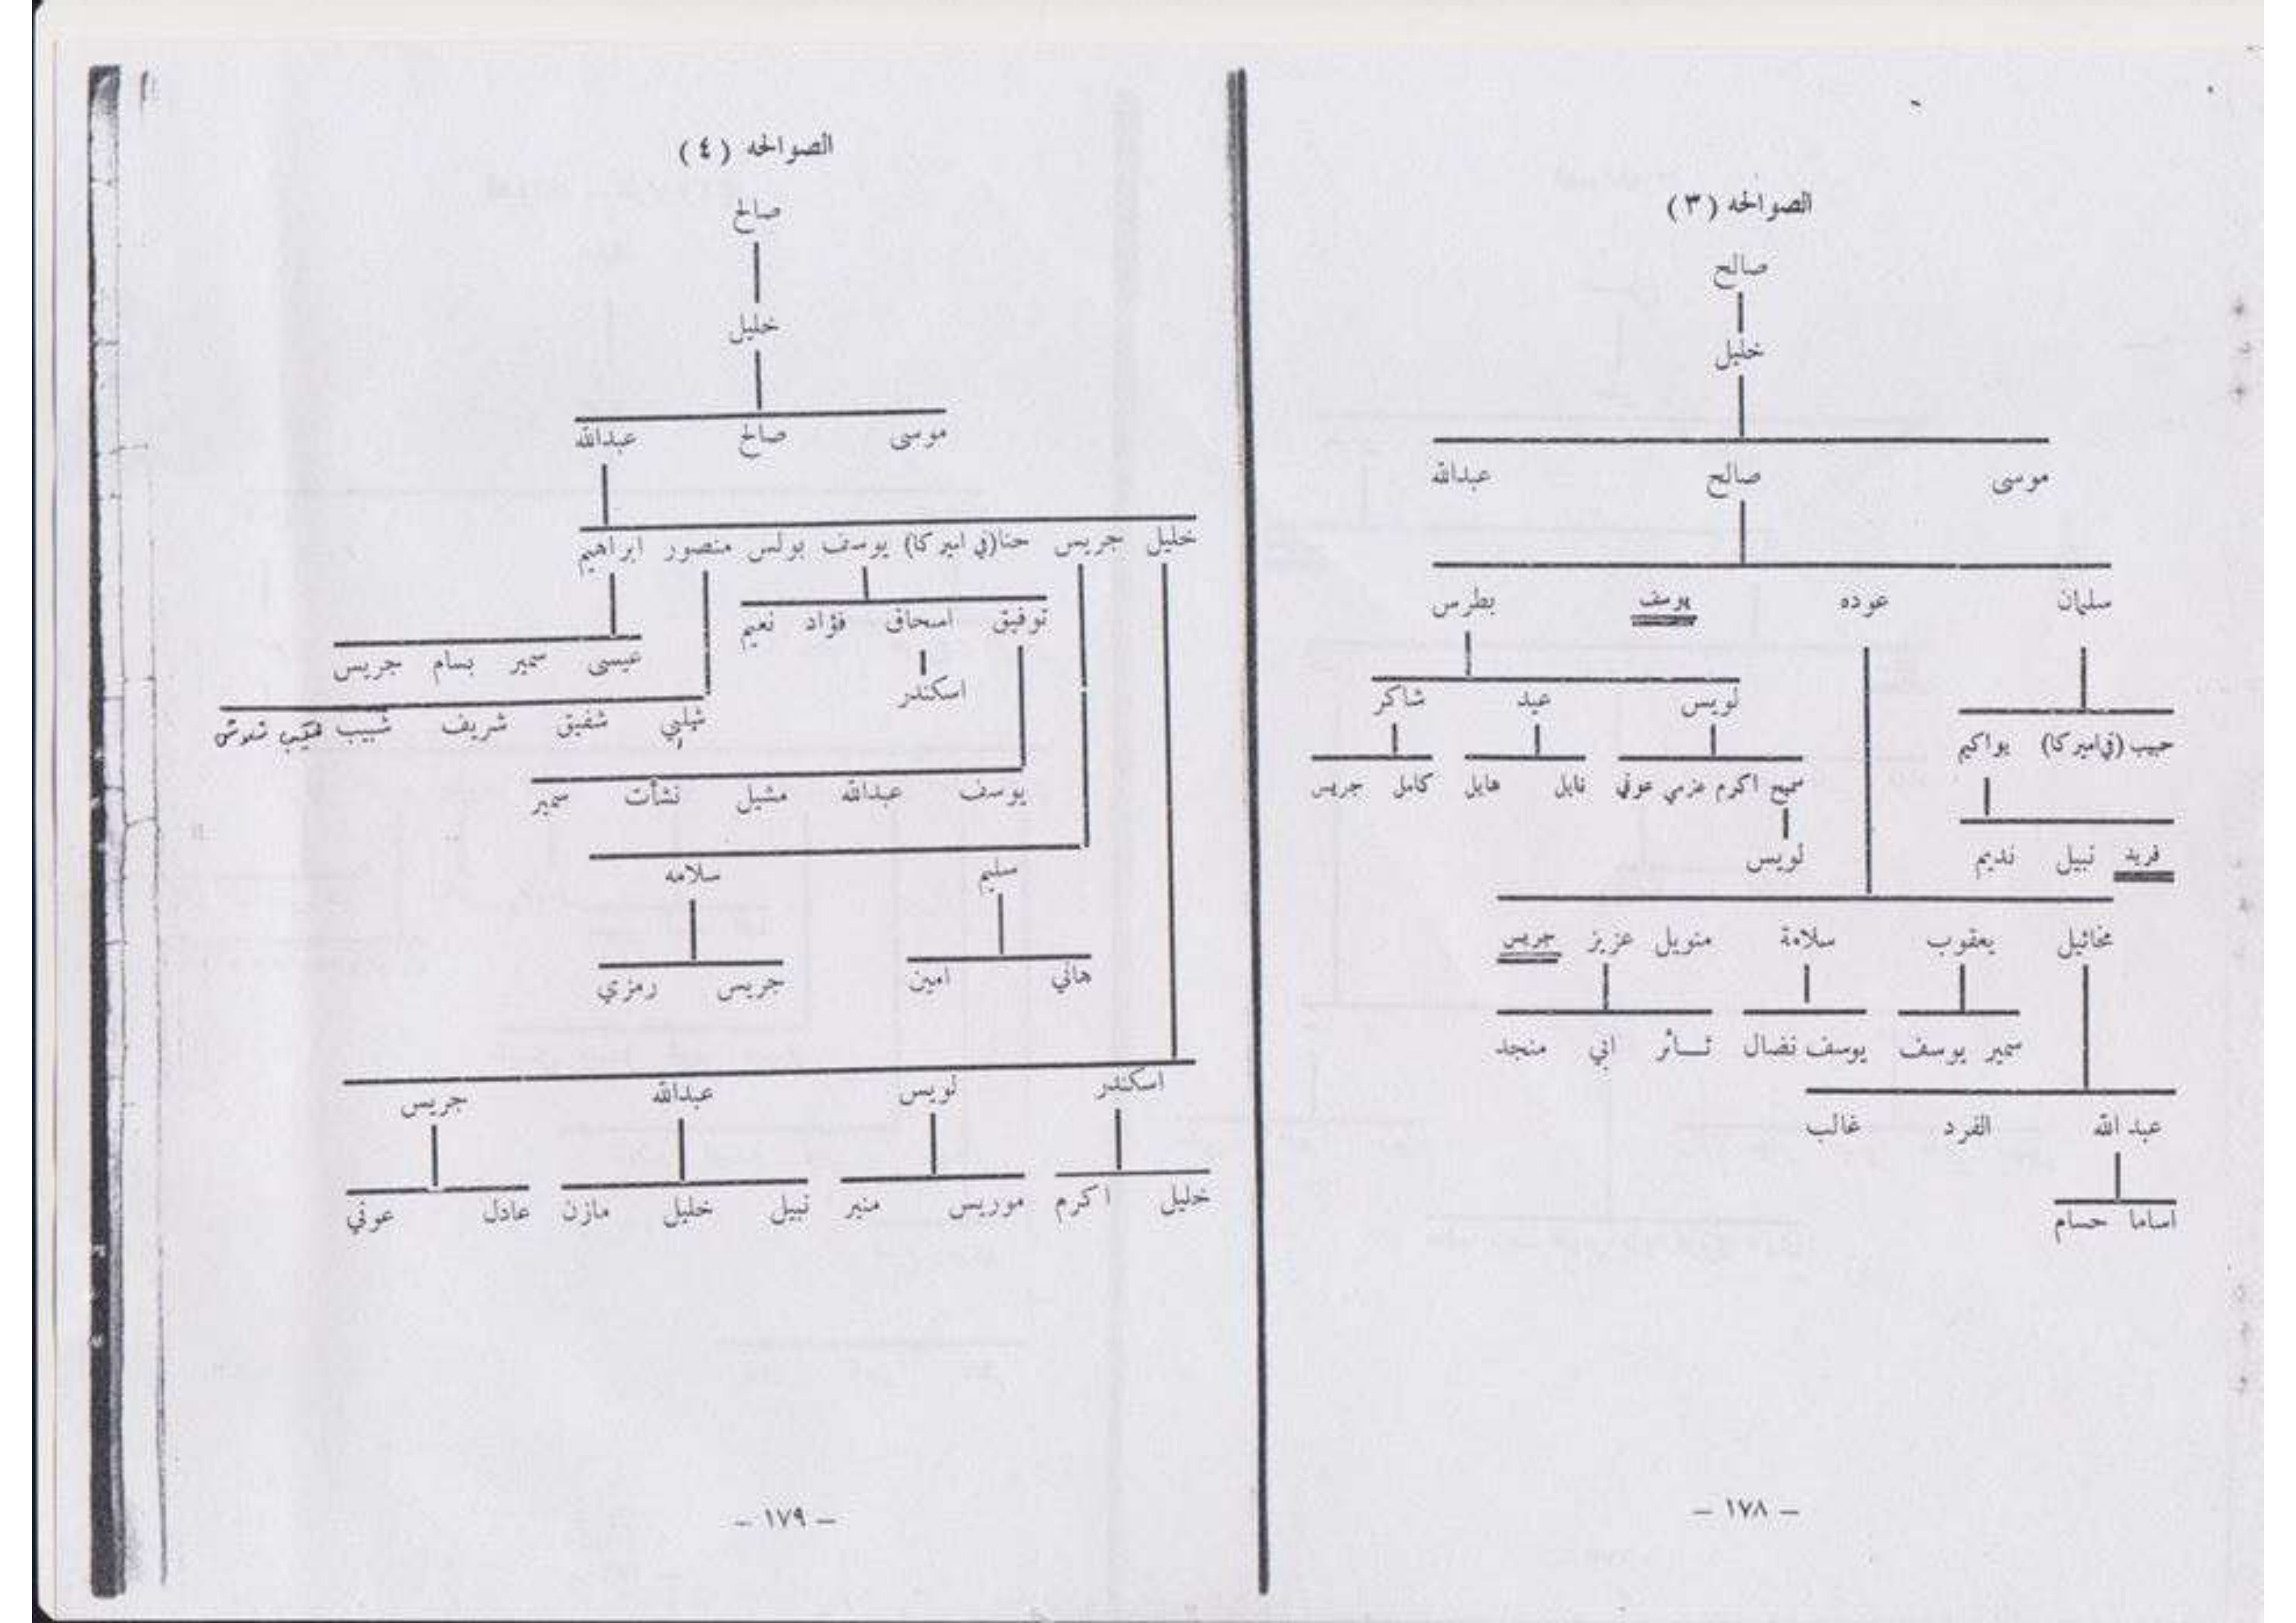 الصوالحه (٣)
صالح
خليل
موسى صالح عبدالله
سليمان عوده يوسف بطرس
لويس عيد شاكر
حبيب (في اميركا) يواكيم
سميح اكرم عزمي عوني نايل هايل كامل جريس
لويس
فريد نبيل نديم
مخائيل يعقوب سلامة منويل عزيز جريس
سمير يوسف يوسف نضال ثائر اني منجد
عبد الله الفرد غالب
اساما حسام
– ١٧٨ –
الصوالحه (٤)
صالح
خليل
موسى صالح عبدالله
خليل جريس حنا (في اميركا) يوسف بولس منصور ابراهيم
توفيق اسحاق فؤاد نعيم
عيسى سمير بسام جريس
اسكندر
شبلي شفيق شريف شبيب
يوسف عبدالله مشيل نشأت سمير
سليم سلامه
هاني امين جريس رمزي
اسكندر لويس عبدالله جريس
خليل اكرم موريس منير نبيل خليل مازن عادل عوني
– ١٧٩ –